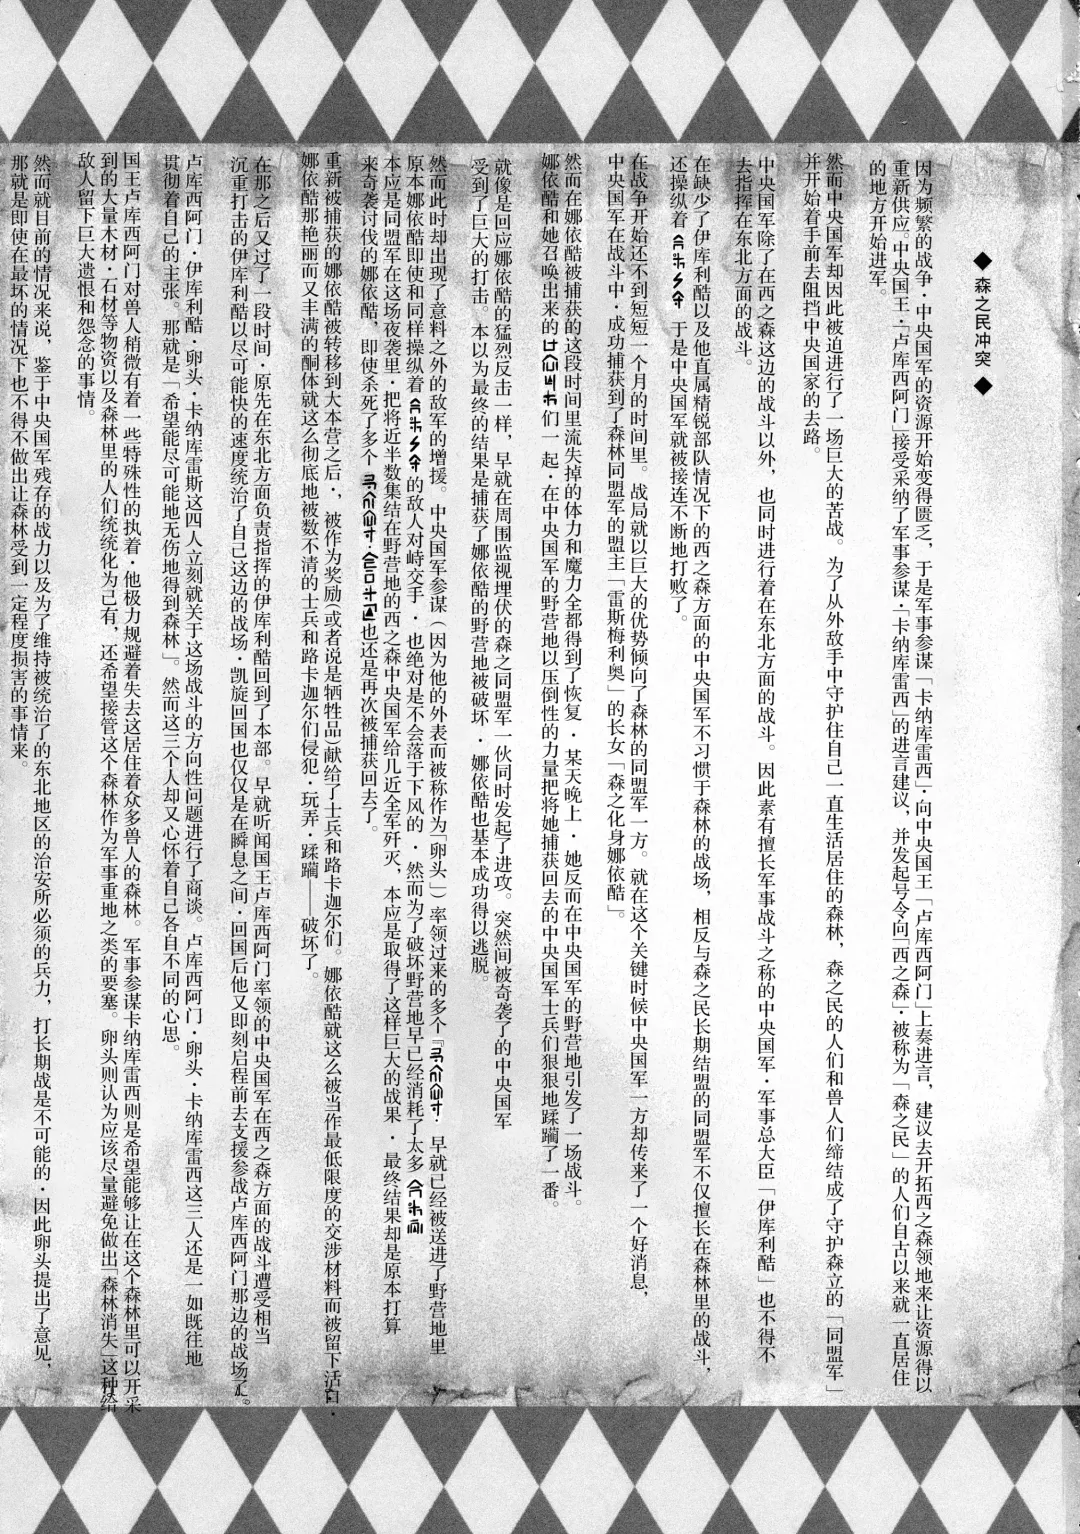 ◆ 森之民冲突 ◆
因为频繁的战争·中央国军的资源开始变得匮乏，于是军事参谋「卡纳库雷西」·向中央国王「卢库西阿门」上奏进言，建议去开拓西之森领地来让资源得以
重新供应。中央国王·「卢库西阿门」接受采纳了军事参谋·「卡纳库雷西」的进言建议，并发起号令向「西之森」·被称为「森之民」的人们自古以来就一直居住
的地方开始进军。
然而中央国军却因此被迫进行了一场巨大的苦战。为了从外敌手中守护住自己一直生活居住的森林，森之民的人们和兽人们缔结成了守护森立的「同盟军」
并开始着手前去阻挡中央国家的去路。
中央国军除了在西之森这边的战斗以外，也同时进行着在东北方面的战斗。因此素有擅长军事战斗之称的中央国军·军事总大臣「伊库利酷」也不得不
去指挥在东北方面的战斗。
在缺少了伊库利酷以及他直属精锐部队情况下的西之森方面的中央国军不习惯于森林的战场，相反与森之民长期结盟的同盟军不仅擅长在森林里的战斗，
还操纵着 于是中央国军就被接连不断地打败了。
在战争开始还不到短短一个月的时间里。战局就以巨大的优势倾向了森林的同盟军一方。就在这个关键时候中央国军一方却传来了一个好消息，
中央国军在战斗中·成功捕获到了森林同盟军的盟主「雷斯梅利奥」的长女「森之化身娜依酷」。
然而在娜依酷被捕获的这段时间里流失掉的体力和魔力全都得到了恢复·某天晚上·她反而在中央国军的野营地引发了一场战斗。
娜依酷和她召唤出来的 们一起·在中央国军的野营地以压倒性的力量把将她捕获回去的中央国军士兵们狠狠地蹂躏了一番。
就像是回应娜依酷的猛烈反击一样，早就在周围监视埋伏的森之同盟军一伙同时发起了进攻。突然间被奇袭了的中央国军
受到了巨大的打击。本以为最终的结果是捕获了娜依酷的野营地被破坏·娜依酷也基本成功得以逃脱。
然而此时却出现了意料之外的敌军的增援。中央国军参谋（因为他的外表而被称作为「卵头」）率领过来的多个『 ·早就已经被送进了野营地里
原本娜依酷即使和同样操纵着 的敌人对峙交手·也绝对是不会落于下风的·然而为了破坏野营地早已经消耗了太多
本应是同盟军在这场夜袭里·把将近半数集结在野营地的西之森中央国军给几近全军歼灭，本应是取得了这样巨大的战果·最终结果却是原本打算
来奇袭讨伐的娜依酷，即使杀死了多个 · 也还是再次被捕获回去了。
重新被捕获的娜依酷被转移到大本营之后·，被作为奖励（或者说是牺牲品）献给了士兵和路卡迦尔们。娜依酷就这么被当作最低限度的交涉材料而被留下活口·
娜依酷那艳丽而又丰满的酮体就这么彻底地被数不清的士兵和路卡迦尔们侵犯·玩弄·蹂躏——破坏了。
在那之后又过了一段时间·原先在东北方面负责指挥的伊库利酷回到了本部。早就听闻国王卢库西阿门率领的中央国军在西之森方面的战斗遭受相当
沉重打击的伊库利酷以尽可能快的速度统治了自己这边的战场·凯旋回国也仅仅是在瞬息之间·回国后他又即刻启程前去支援参战卢库西阿门那边的战场了。
卢库西阿门·伊库利酷·卵头·卡纳库雷斯这四人立刻就关于这场战斗的方向性问题进行了商谈。卢库西阿门·卵头·卡纳库雷西这三人还是一如既往地
贯彻着自己的主张。那就是「希望能尽可能地无伤地得到森林」。然而这三个人却又心怀着自己各自不同的心思。
国王卢库西阿门对兽人稍微有着一些特殊性的执着·他极力规避着失去这居住着众多兽人的森林。军事参谋卡纳库雷西则是希望能够让在这个森林里可以开采
到的大量木材·石材等物资以及森林里的人们统统化为己有，还希望接管这个森林作为军事重地之类的要塞。卵头则认为应该尽量避免做出「森林消失」这种给
敌人留下巨大遗恨和怨念的事情。
然而就目前的情况来说，鉴于中央国军残存的战力以及为了维持被统治了的东北地区的治安所必须的兵力，打长期战是不可能的·因此卵头提出了意见，
那就是即使在最坏的情况下也不得不做出让森林受到一定程度损害的事情来。